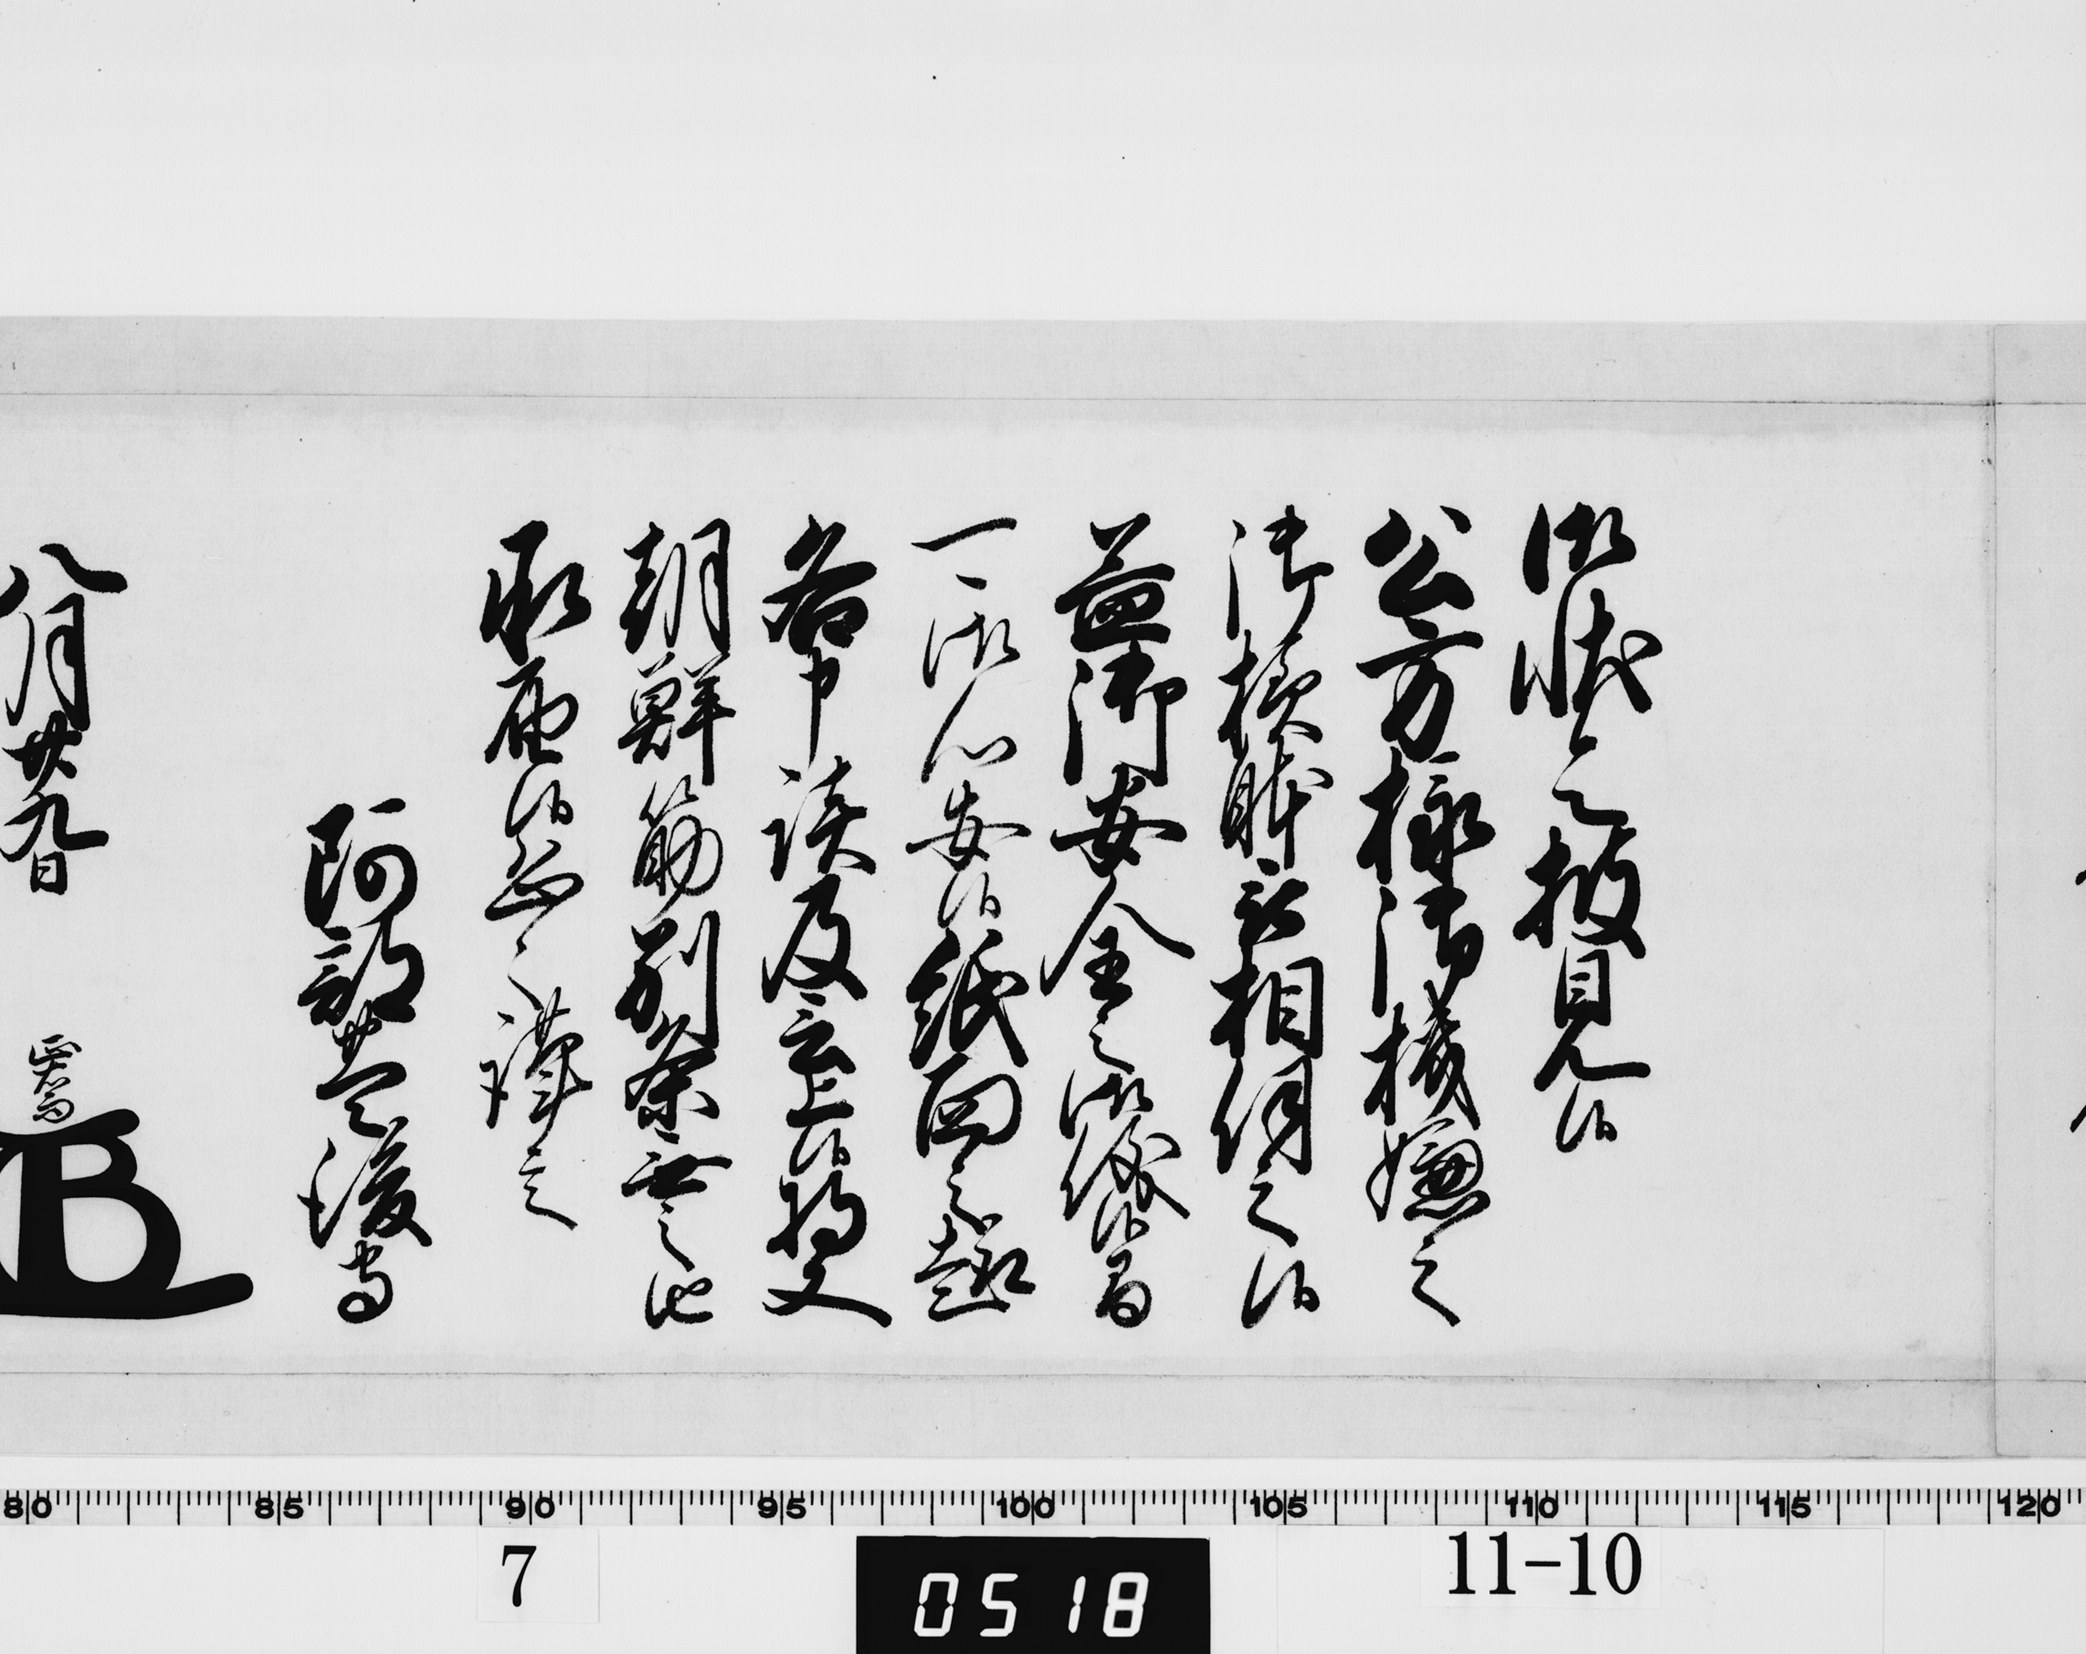 御状令披見候
公方様御機嫌之
御様躰被相伺之候
益御安全之御儀候間
可御心安候紙面之趣
各申談及言上候将又
朝鮮筋別条無之由
承届候恐々謹言
阿部豊後守
八月廿九日 正喬
80 85 90 95 100 105 110 115 120
7 0518 11-10